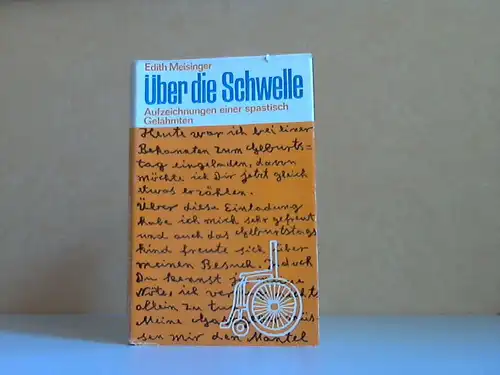 Edith Meisinger
Über die Schwelle
Aufzeichnungen einer spastisch
Gelähmten
Heute war ich bei einer
Bekannten zum Geburts=
tag eingeladen, davon
möchte ich Dir jetzt gleich
etwas erzählen.
Über diese Einladung
habe ich mich sehr gefreut
und auch das Geburtstags
kind freute sich über
meinen Besuch. Jedoch
Du kennst
Nöte, ich
allein zu
Meine
sen mir den Mantel